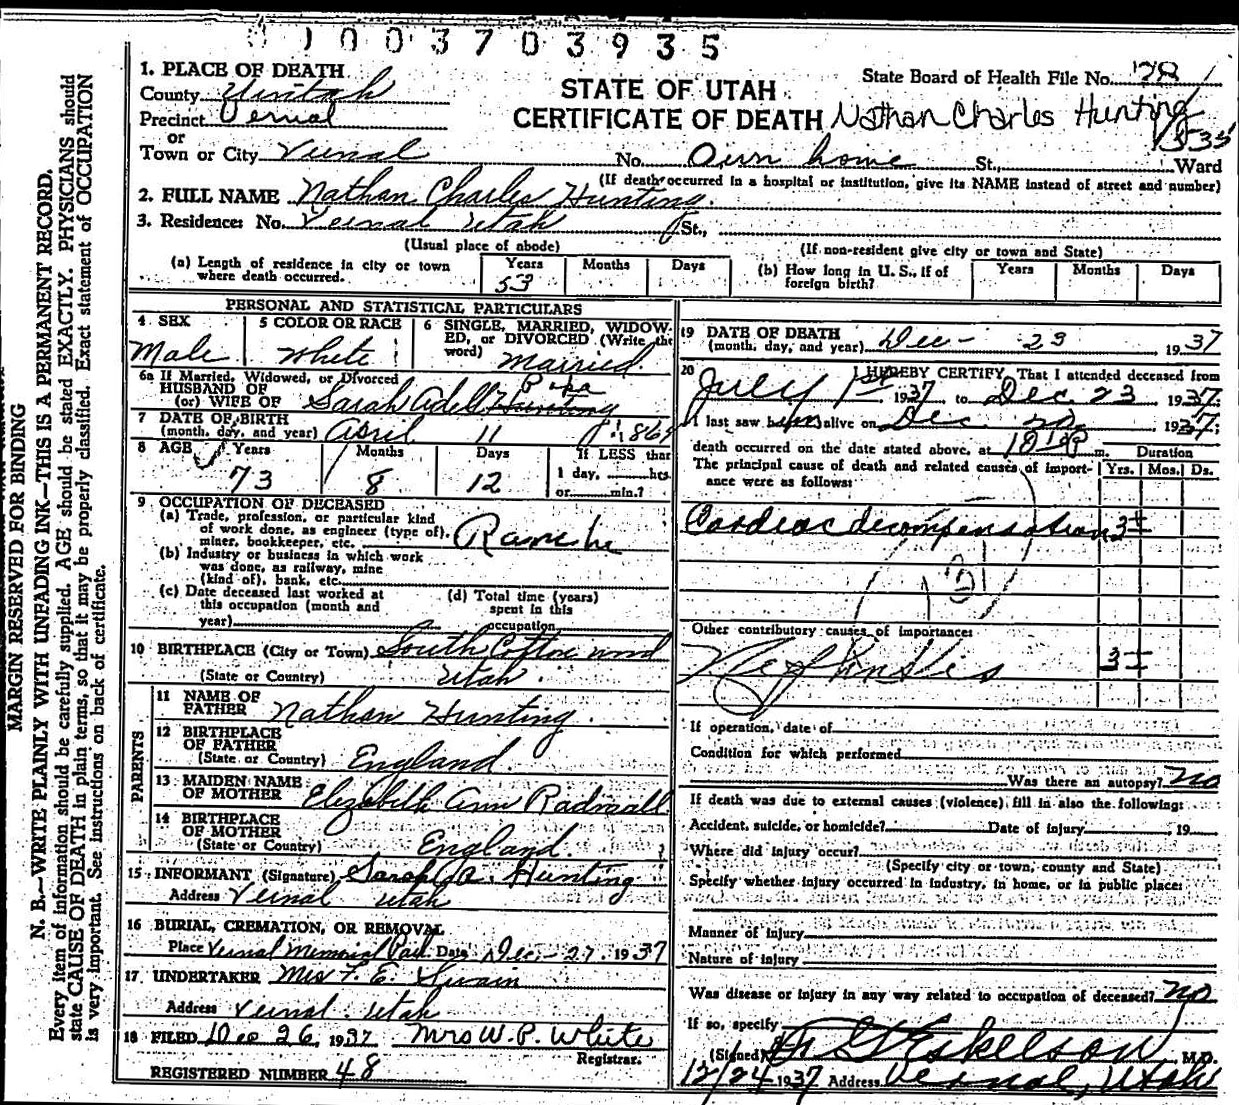 0100370 3935
1. PLACE OF DEATH
County Uintah
Precinct Vernal
or
Town or City Vernal No. Own home St., Ward
STATE OF UTAH
CERTIFICATE OF DEATH
State Board of Health File No. 78
Nathan Charles Hunting
(If death occurred in a hospital or institution, give its NAME instead of street and number)
2. FULL NAME Nathan Charles Hunting.
3. Residence: No. Vernal Utah St.,
(Usual place of abode) (If non-resident give city or town and State)
(a) Length of residence in city or town where death occurred. Years 53 Months Days
(b) How long in U. S., if of foreign birth? Years Months Days
PERSONAL AND STATISTICAL PARTICULARS
4 SEX Male
5 COLOR OR RACE White
6 SINGLE, MARRIED, WIDOWED, or DIVORCED (Write the word) Married.
6a If Married, Widowed, or Divorced
HUSBAND OF
(or) WIFE OF Sarah Adell Hunting
7 DATE OF BIRTH
(month, day, and year) April 11
8 AGE Years 73 Months 8 Days 12 If LESS than
1 day, hrs.
or min.?
9 OCCUPATION OF DECEASED
(a) Trade, profession, or particular kind
of work done, as engineer (type of),
miner, bookkeeper, etc.
(b) Industry or business in which work
was done, as railway, mine
(kind of), bank, etc.
(c) Date deceased last worked at
this occupation (month and
year)
(d) Total time (years)
spent in this
occupation
10 BIRTHPLACE (City or Town) South Cottonwood
(State or Country) Utah.
PARENTS
11 NAME OF
FATHER Nathan Hunting.
12 BIRTHPLACE
OF FATHER
(State or Country) England.
13 MAIDEN NAME
OF MOTHER Elizabeth Ann Radmall
14 BIRTHPLACE
OF MOTHER
(State or Country) England.
15 INFORMANT (Signature) Sarah A. Hunting
Address Vernal Utah
16 BURIAL, CREMATION, OR REMOVAL
Place Vernal Memorial Park Date Dec - 27 1937
17 UNDERTAKER Mrs F. E. Swain
Address Vernal Utah
18 FILED Dec 26, 1937 Mrs W. P. White
Registrar.
REGISTERED NUMBER 48
19 DATE OF DEATH
(month, day, and year) Dec - 23 1937
20 I HEREBY CERTIFY, That I attended deceased from
July 1st 1937 to Dec 23 1937.
I last saw him alive on Dec. 1937;
death occurred on the date stated above, at m. Duration
The principal cause of death and related causes of importance were as follows: Yrs. Mos. Ds.
Cardiac decompensation 3±
131
Other contributory causes of importance:
3±
If operation, date of
Condition for which performed
Was there an autopsy? no
If death was due to external causes (violence) fill in also the following:
Accident, suicide, or homicide? Date of injury , 19
Where did injury occur?
(Specify city or town, county and State)
Specify whether injury occurred in industry, in home, or in public place:
Manner of injury
Nature of injury
Was disease or injury in any way related to occupation of deceased? no
If so, specify
(Signed) G Eskelson M.D.
12/24 1937 Address Vernal, Utah
MARGIN RESERVED FOR BINDING
N. B.—WRITE PLAINLY WITH UNFADING INK—THIS IS A PERMANENT RECORD.
Every item of information should be carefully supplied. AGE should be stated EXACTLY. PHYSICIANS should
state CAUSE OF DEATH in plain terms, so that it may be properly classified. Exact statement of OCCUPATION
is very important. See instructions on back of certificate.